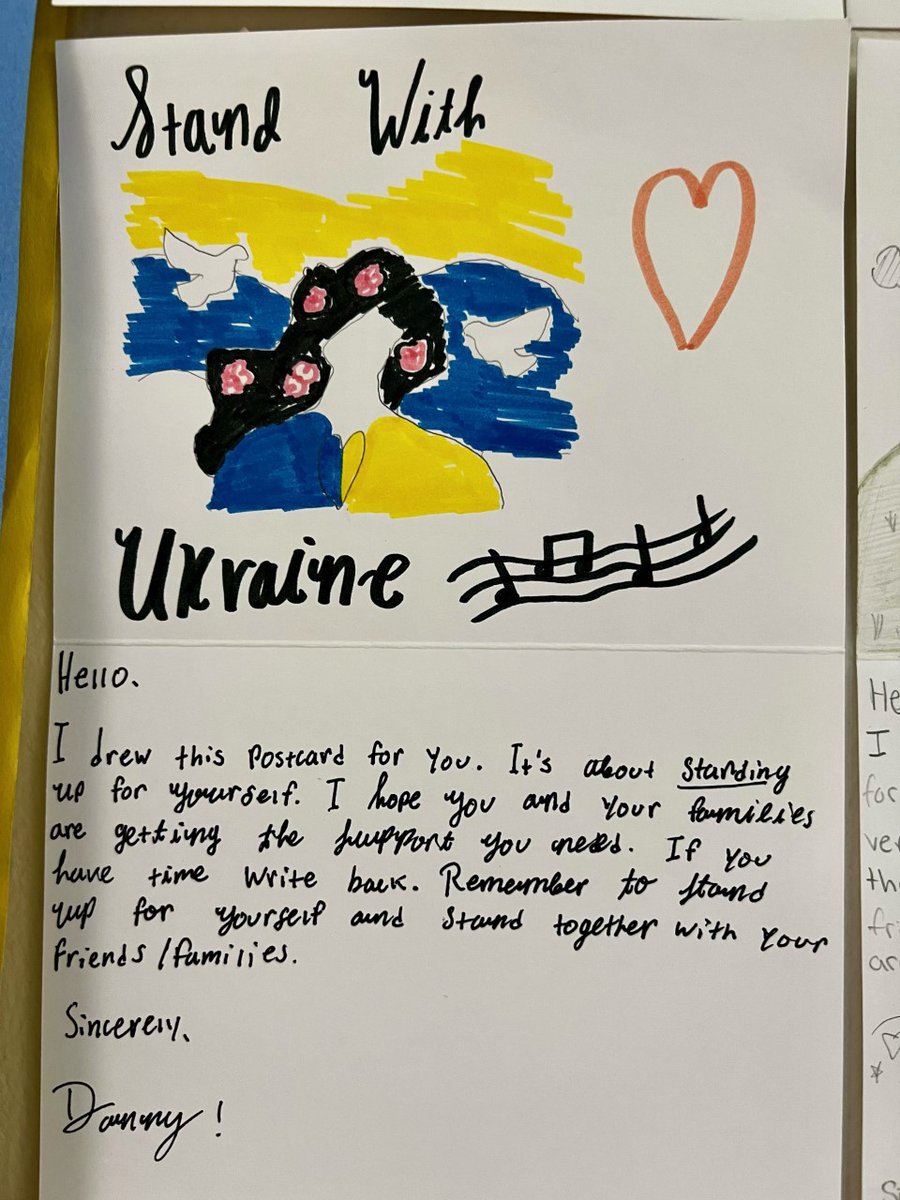 Stand With
Ukraine
Hello.
I drew this postcard for you. It's about standing
up for yourself. I hope you and your families
are getting the support you need. If you
have time write back. Remember to stand
up for yourself and stand together with your
friends/families.
Sincerely,
Danny!
He
I
for
ver
th
fri
ar